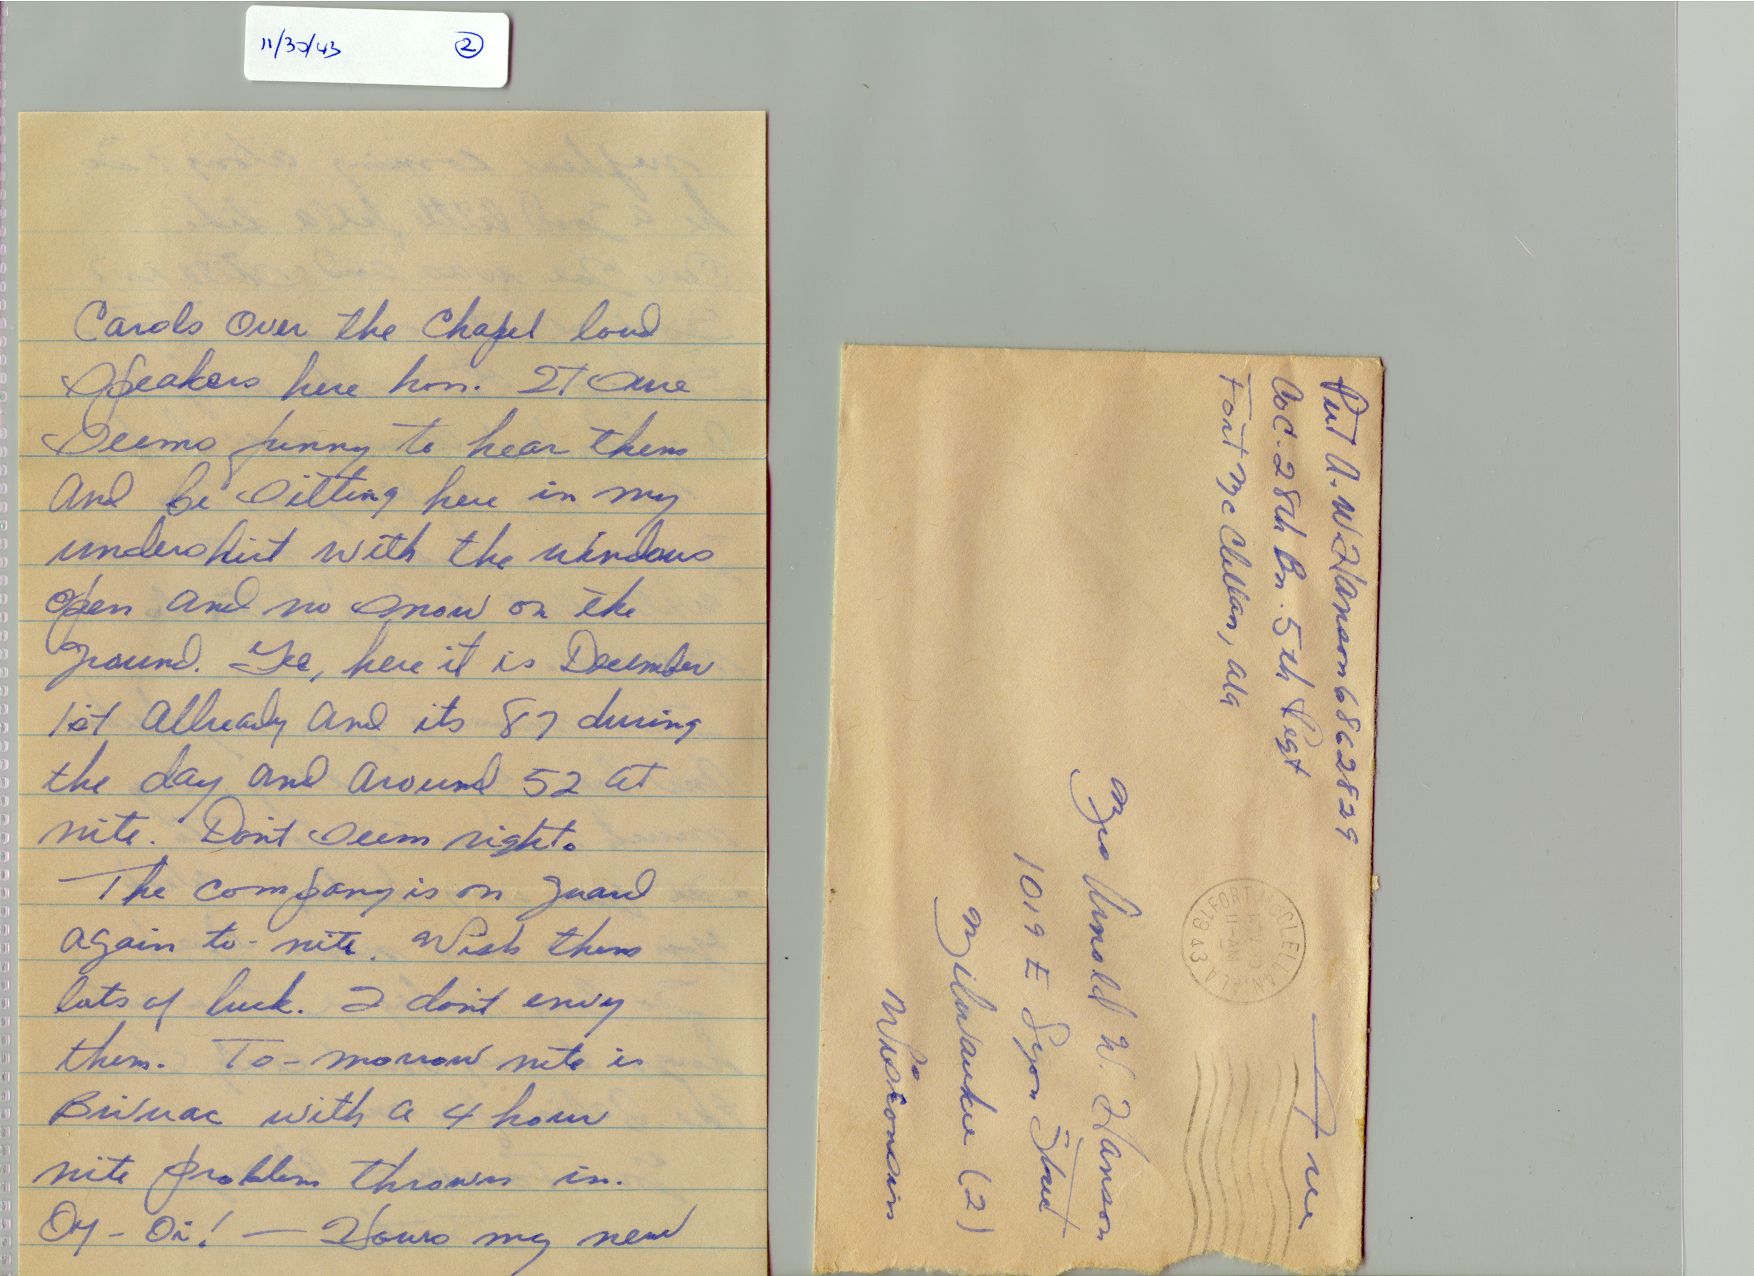 11/30/43 2
Carols over the Chapel loud
speakers here hon. It sure
seems funny to hear them
and be sitting here in my
undershirt with the windows
open and no snow on the
ground. Gee, here it is December
1st allready and its 87 during
the day and around 52 at
nite. Don't seem right.
The company is on guard
again to-nite. Wish them
lots of luck. I don't envy
them. To-morrow nite is
Bivwac with a 4 hour
nite problem thrown in.
Oy-Oi! — Hows my new
Pvt A. W. Hanson 36862829
Co C. 28th Bn. 5th Regt
Fort McClellan, Ala
Free
FORT MCCLELLAN, ALA.
11-AM
1943
Mrs Arnold W. Hanson
1019 E Lyon Street
Milwaukee (2)
Wisconsin